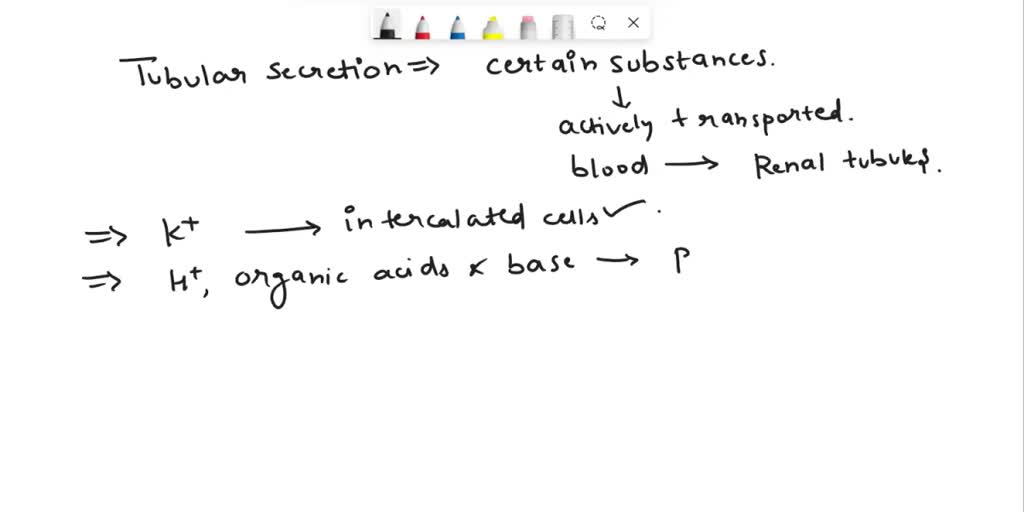 Tubular secretion ⇒ certain substances.
↓
actively transported.
blood → Renal tubules.
⇒ K+ → intercalated cells ✓.
⇒ H+, organic acids & base → P